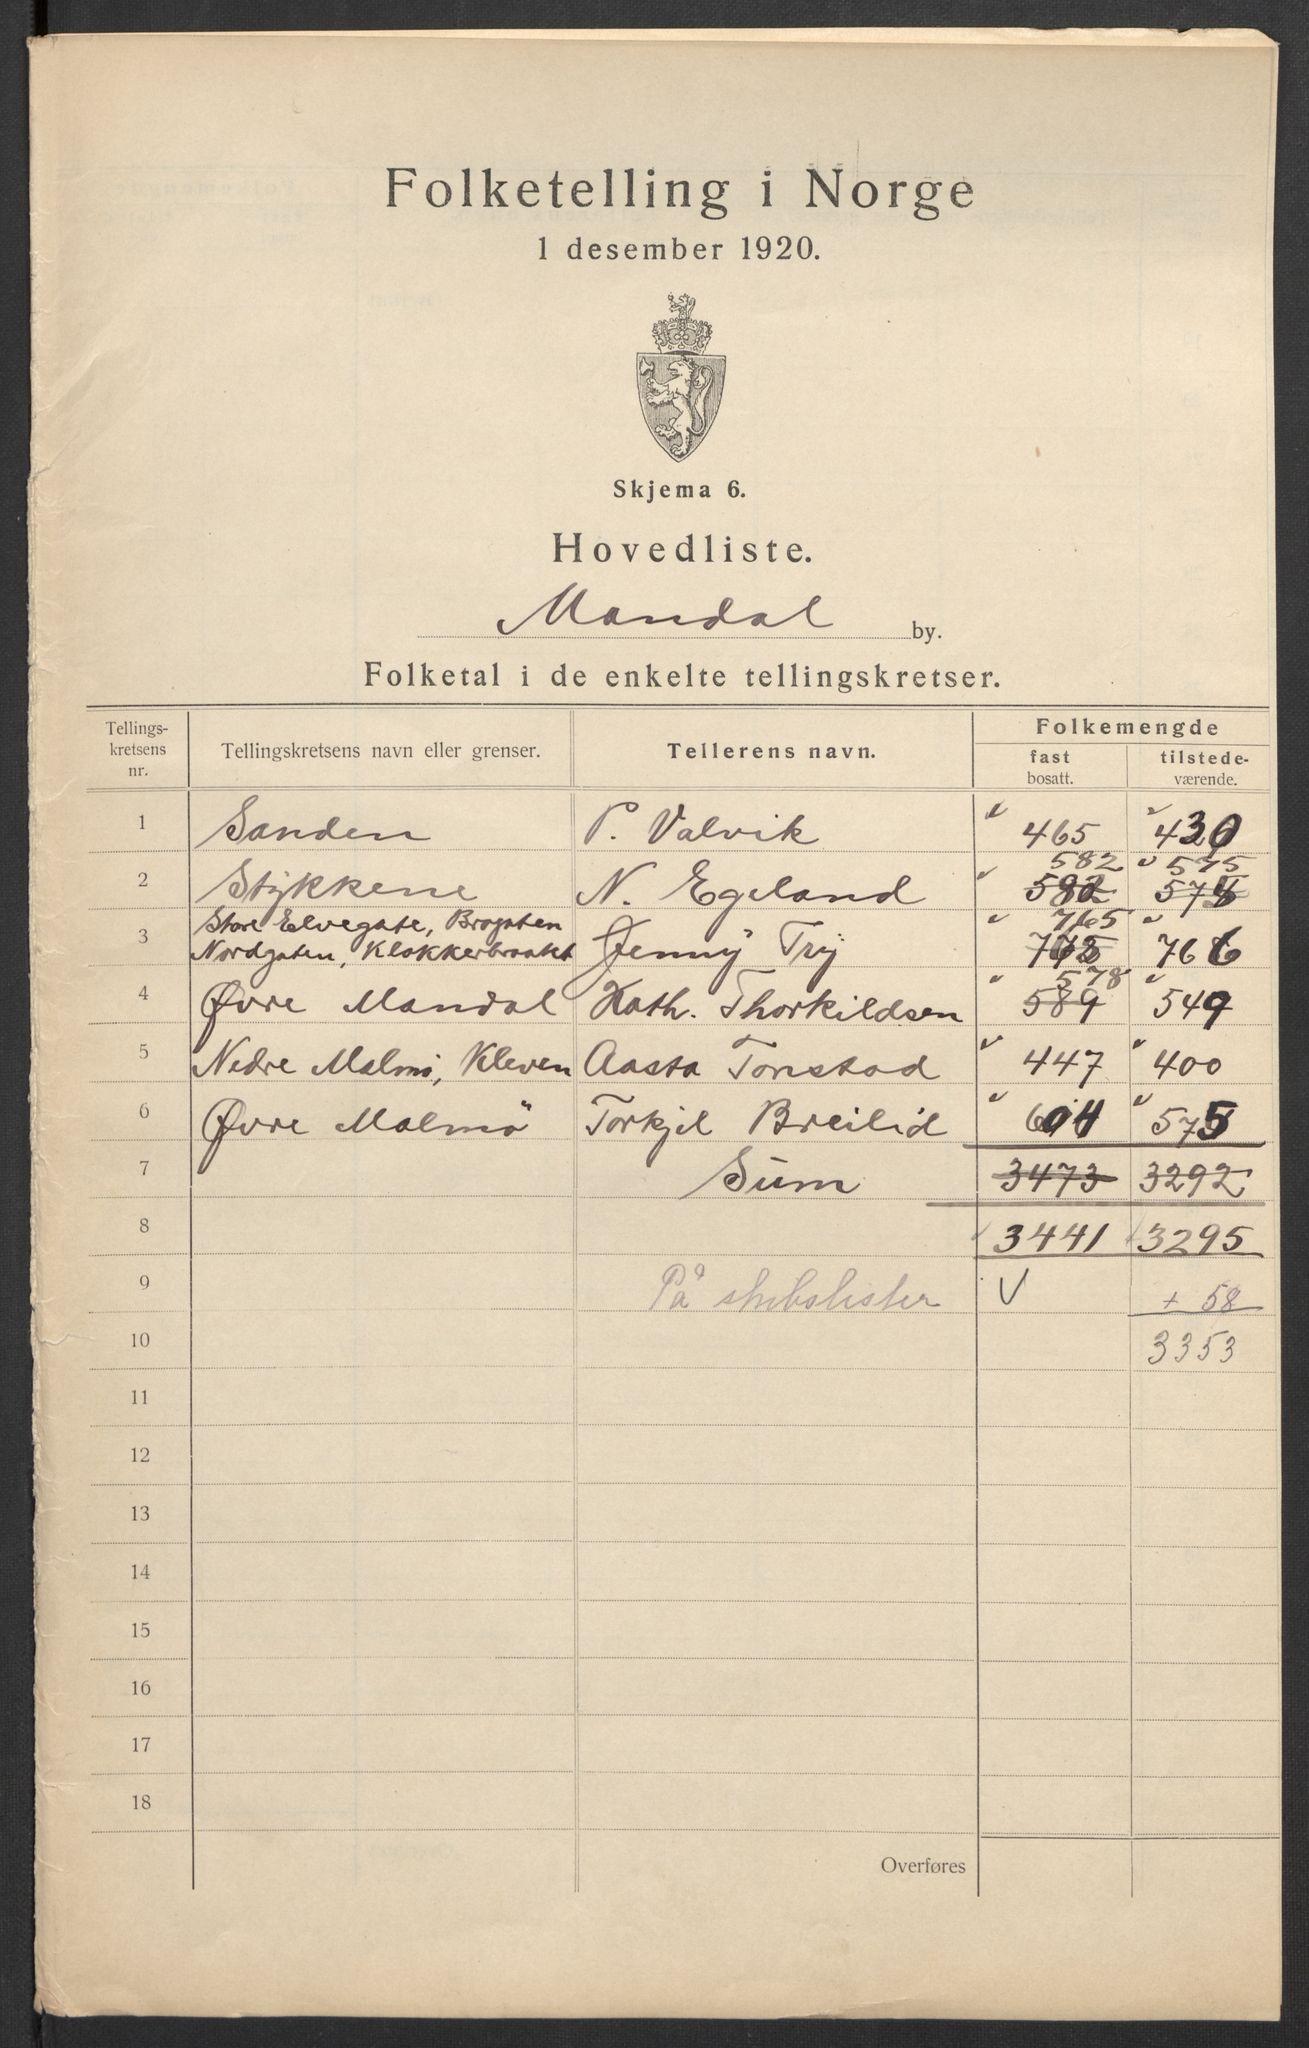 Folketelling i Norge
1 desember 1920.
Skjema 6.
Hovedliste.
Mandal by.
Folketal i de enkelte tellingskretser.
Tellings-kretsens nr. Tellingskretsens navn eller grenser. Tellerens navn. Folkemengde
fast bosatt. tilstede-værende.
1 Sanden P. Valvik 465 430
582 575
2 Stykkene N. Egeland 582 574
Store Elvegate, Brogaten 765
3 Nordgaten, Klokkerbraaket Jenny Try 766
578
4 Øvre Mandal Kath. Thorkildsen 589 549
5 Nedre Malmö, Kleven Aasta Tonstad 447 400
6 Øvre Malmö Torkjel Breilid 604 575
7 Sum 3473 3292
8 3441 3295
9 På skibslister + 58
10 3353
11
12
13
14
15
16
17
18
Overføres